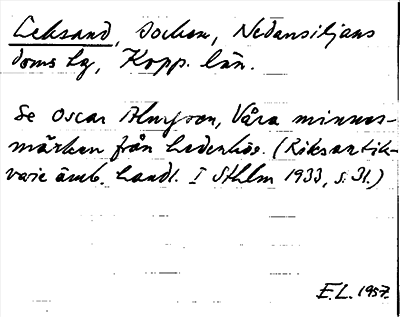 Leksand, socken, Nedansiljans
doms lg, Kopp. län.
Se Oscar Almgren, Våra minnes-
märken från hedenhös. (Riksantik-
varie ämb. handl. I Sthlm 1933, s. 31.)
E.L. 1957.